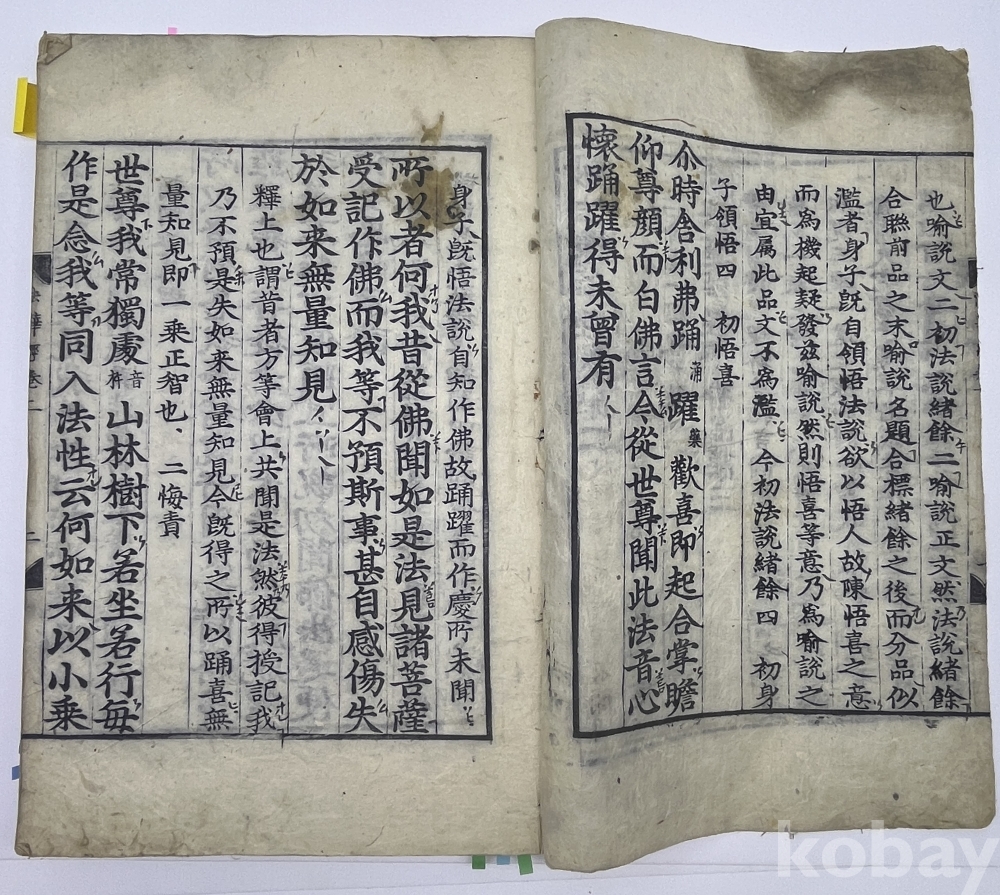 也喻說文二初法說緒餘二喻說正文然法說緒餘
合聯前品之末喻說名題合標緒餘之後而分品似
濫者身子旣自領悟法說欲以悟人故陳悟喜之意
而爲機起疑發玆喻說然則悟喜等意乃爲喻說之
由宜属此品文不爲濫今初法說緒餘四 初身
子領悟四 初悟喜
尒時舍利弗踊涌躍藥歡喜即起合掌瞻
仰尊顔而白佛言今從世尊聞此法音心
懷踊躍得未曾有
身子旣悟法說自知作佛故踊躍而作慶所未聞
所以者何我昔從佛聞如是法見諸菩薩
受記作佛而我等不預斯事甚自感傷失
於如來無量知見
釋上也謂昔者方等會上共聞是法然彼得授記我
乃不預是失如来無量知見今旣得之所以踊喜無
量知見即一乘正智也 二悔責
世尊我常獨處音杵山林樹下若坐若行每
作是念我等同入法性云何如来以小乘
kobay